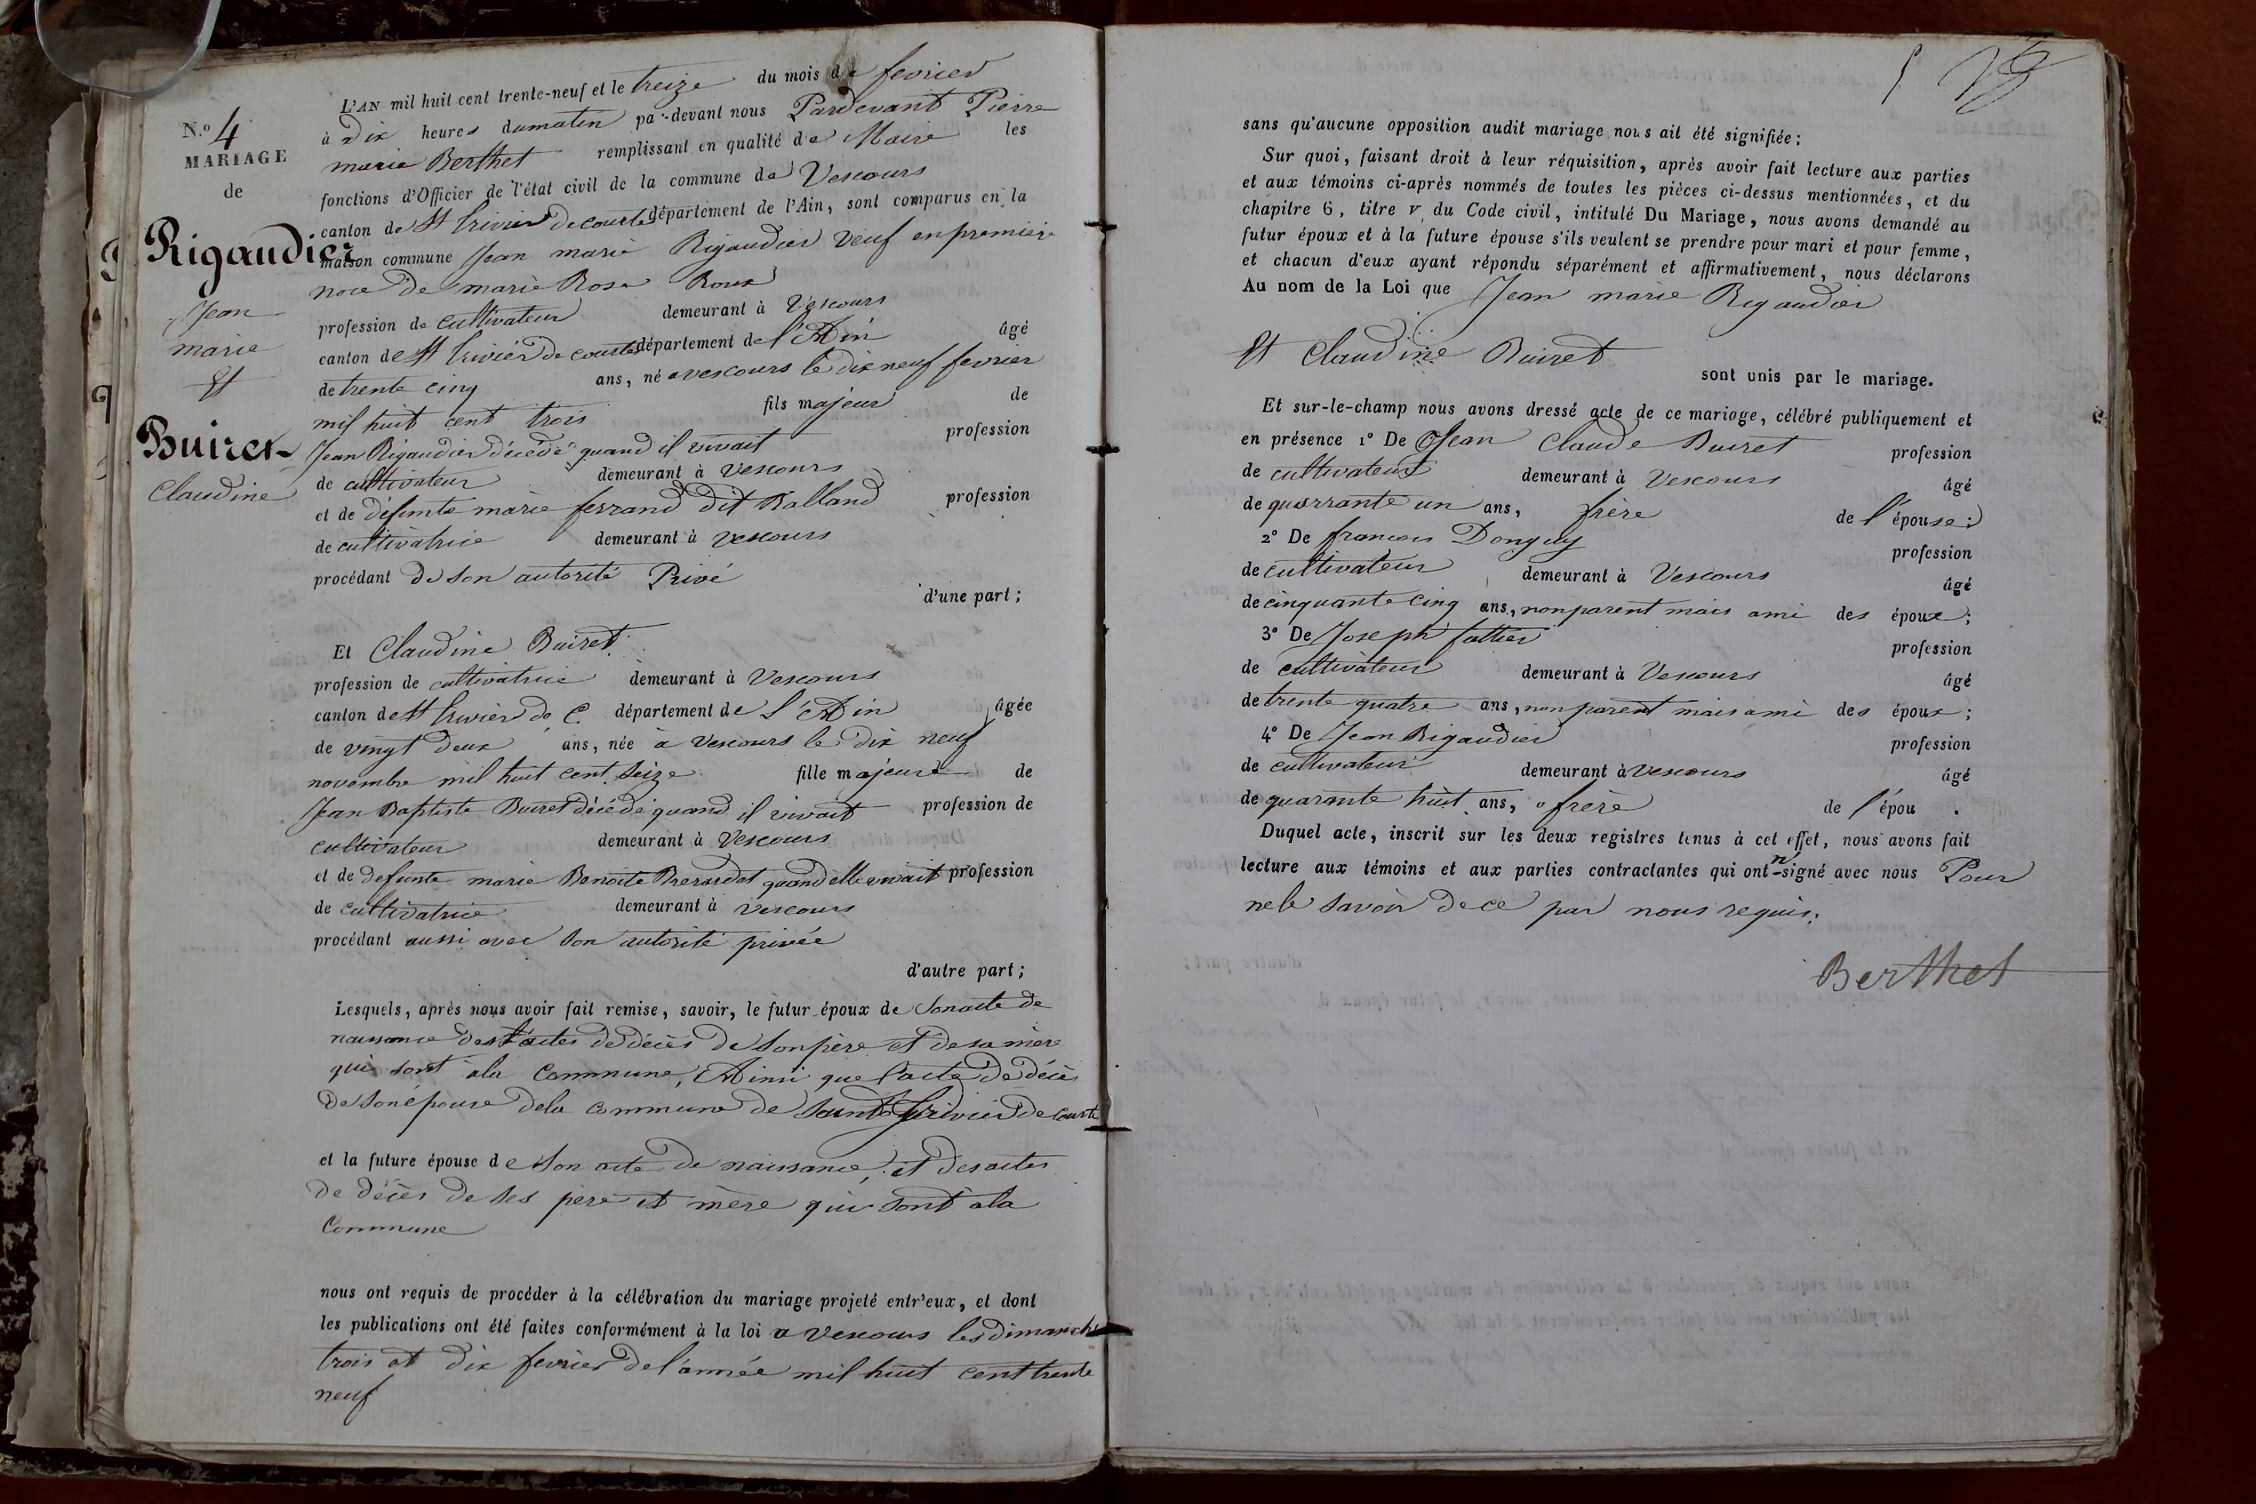 N.º 4
MARIAGE
de
Rigaudier
Jean
marie
Et
Buiret
Claudine
L'AN mil huit cent trente-neuf et le treize du mois de fevrier
à Dix heures dumatin par-devant nous Pardevant Pierre
marie Berthet remplissant en qualité de Maire les
fonctions d'Officier de l'état civil de la commune de Vescours
canton de St trivier de courtes département de l'Ain, sont comparus en la
maison commune Jean marie Rigaudier veuf en premiere
noce de marie Rose Roux
profession de cultivateur demeurant à Vescours
canton de St trivier de courtes département de l'Ain âgé
de trente cinq ans, né a vescours le dix neuf fevrier
mil huit cent trois fils majeur de
Jean Rigaudier décédé quand il vivait profession
de cultivateur demeurant à Vescours
et de défunte marie ferrand dit Balland profession
de cultivatrice demeurant à vescours
procédant de son autorité Privé
d'une part ;
Et Claudine Buiret
profession de cultivatrice demeurant à Vescours
canton de St trivier de C. département de L'Ain âgée
de vingt deux ans, née a Vescours le dix neuf
novembre mil huit cent seize fille majeure de
Jean Baptiste Buiret décédé quand il vivait profession de
cultivateur demeurant à Vescours
et de defunte marie Benoite quand elle vivait profession
de cultivatrice demeurant à vescours
procédant aussi avec son autorité privée
d'autre part ;
Lesquels, après nous avoir fait remise, savoir, le futur époux de son acte de
naissance des actes de décès de son père et de sa mère
qui sont a la Commune, Ainsi que l'acte de décès
De son épouse de la commune de Saint Trivier de Courte
et la future épouse de son acte de naissance, et des actes
de décès de ses père et mère qui sont a la
Commune
nous ont requis de procéder à la célébration du mariage projeté entr'eux, et dont
les publications ont été faites conformément à la loi a Vescours les dimanche
trois et dix fevrier de l'année mil huit cent trente
neuf
sans qu'aucune opposition audit mariage nous ait été signifiée ;
Sur quoi, faisant droit à leur réquisition, après avoir fait lecture aux parties
et aux témoins ci-après nommés de toutes les pièces ci-dessus mentionnées, et du
chapitre 6, titre v du Code civil, intitulé Du Mariage, nous avons demandé au
futur époux et à la future épouse s'ils veulent se prendre pour mari et pour femme,
et chacun d'eux ayant répondu séparément et affirmativement, nous déclarons
Au nom de la Loi que Jean marie Rigaudier
Et Claudine Buiret
sont unis par le mariage.
Et sur-le-champ nous avons dressé acte de ce mariage, célébré publiquement et
en présence 1º De Jean Claude Buiret profession
de cultivateur demeurant à Vescours âgé
de quarrante un ans, frère de l'épouse ;
2º De francois Donguy profession
de cultivateur demeurant à Vescours âgé
de cinquante cinq ans, non parent mais ami des époux ;
3º De Joseph profession
de cultivateur demeurant à Vescours âgé
de trente quatre ans, non parent mais ami des époux ;
4º De Jean Rigaudier profession
de cultivateur demeurant à vescours âgé
de quarante huit ans, frère de l'épou .
Duquel acte, inscrit sur les deux registres tenus à cet effet, nous avons fait
lecture aux témoins et aux parties contractantes qui ont n signé avec nous Pour
ne le savoir de ce par nous requis.
Berthet